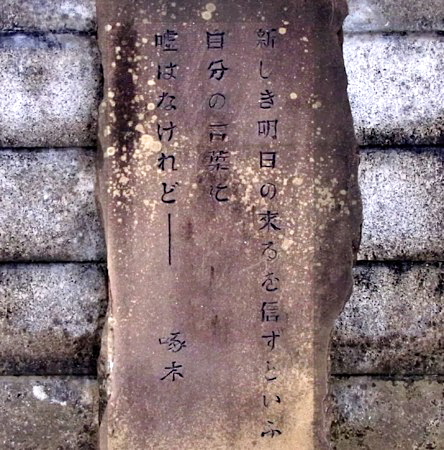 新しき明日の来るを信ずといふ
自分の言葉に
嘘はなけれど――
啄木